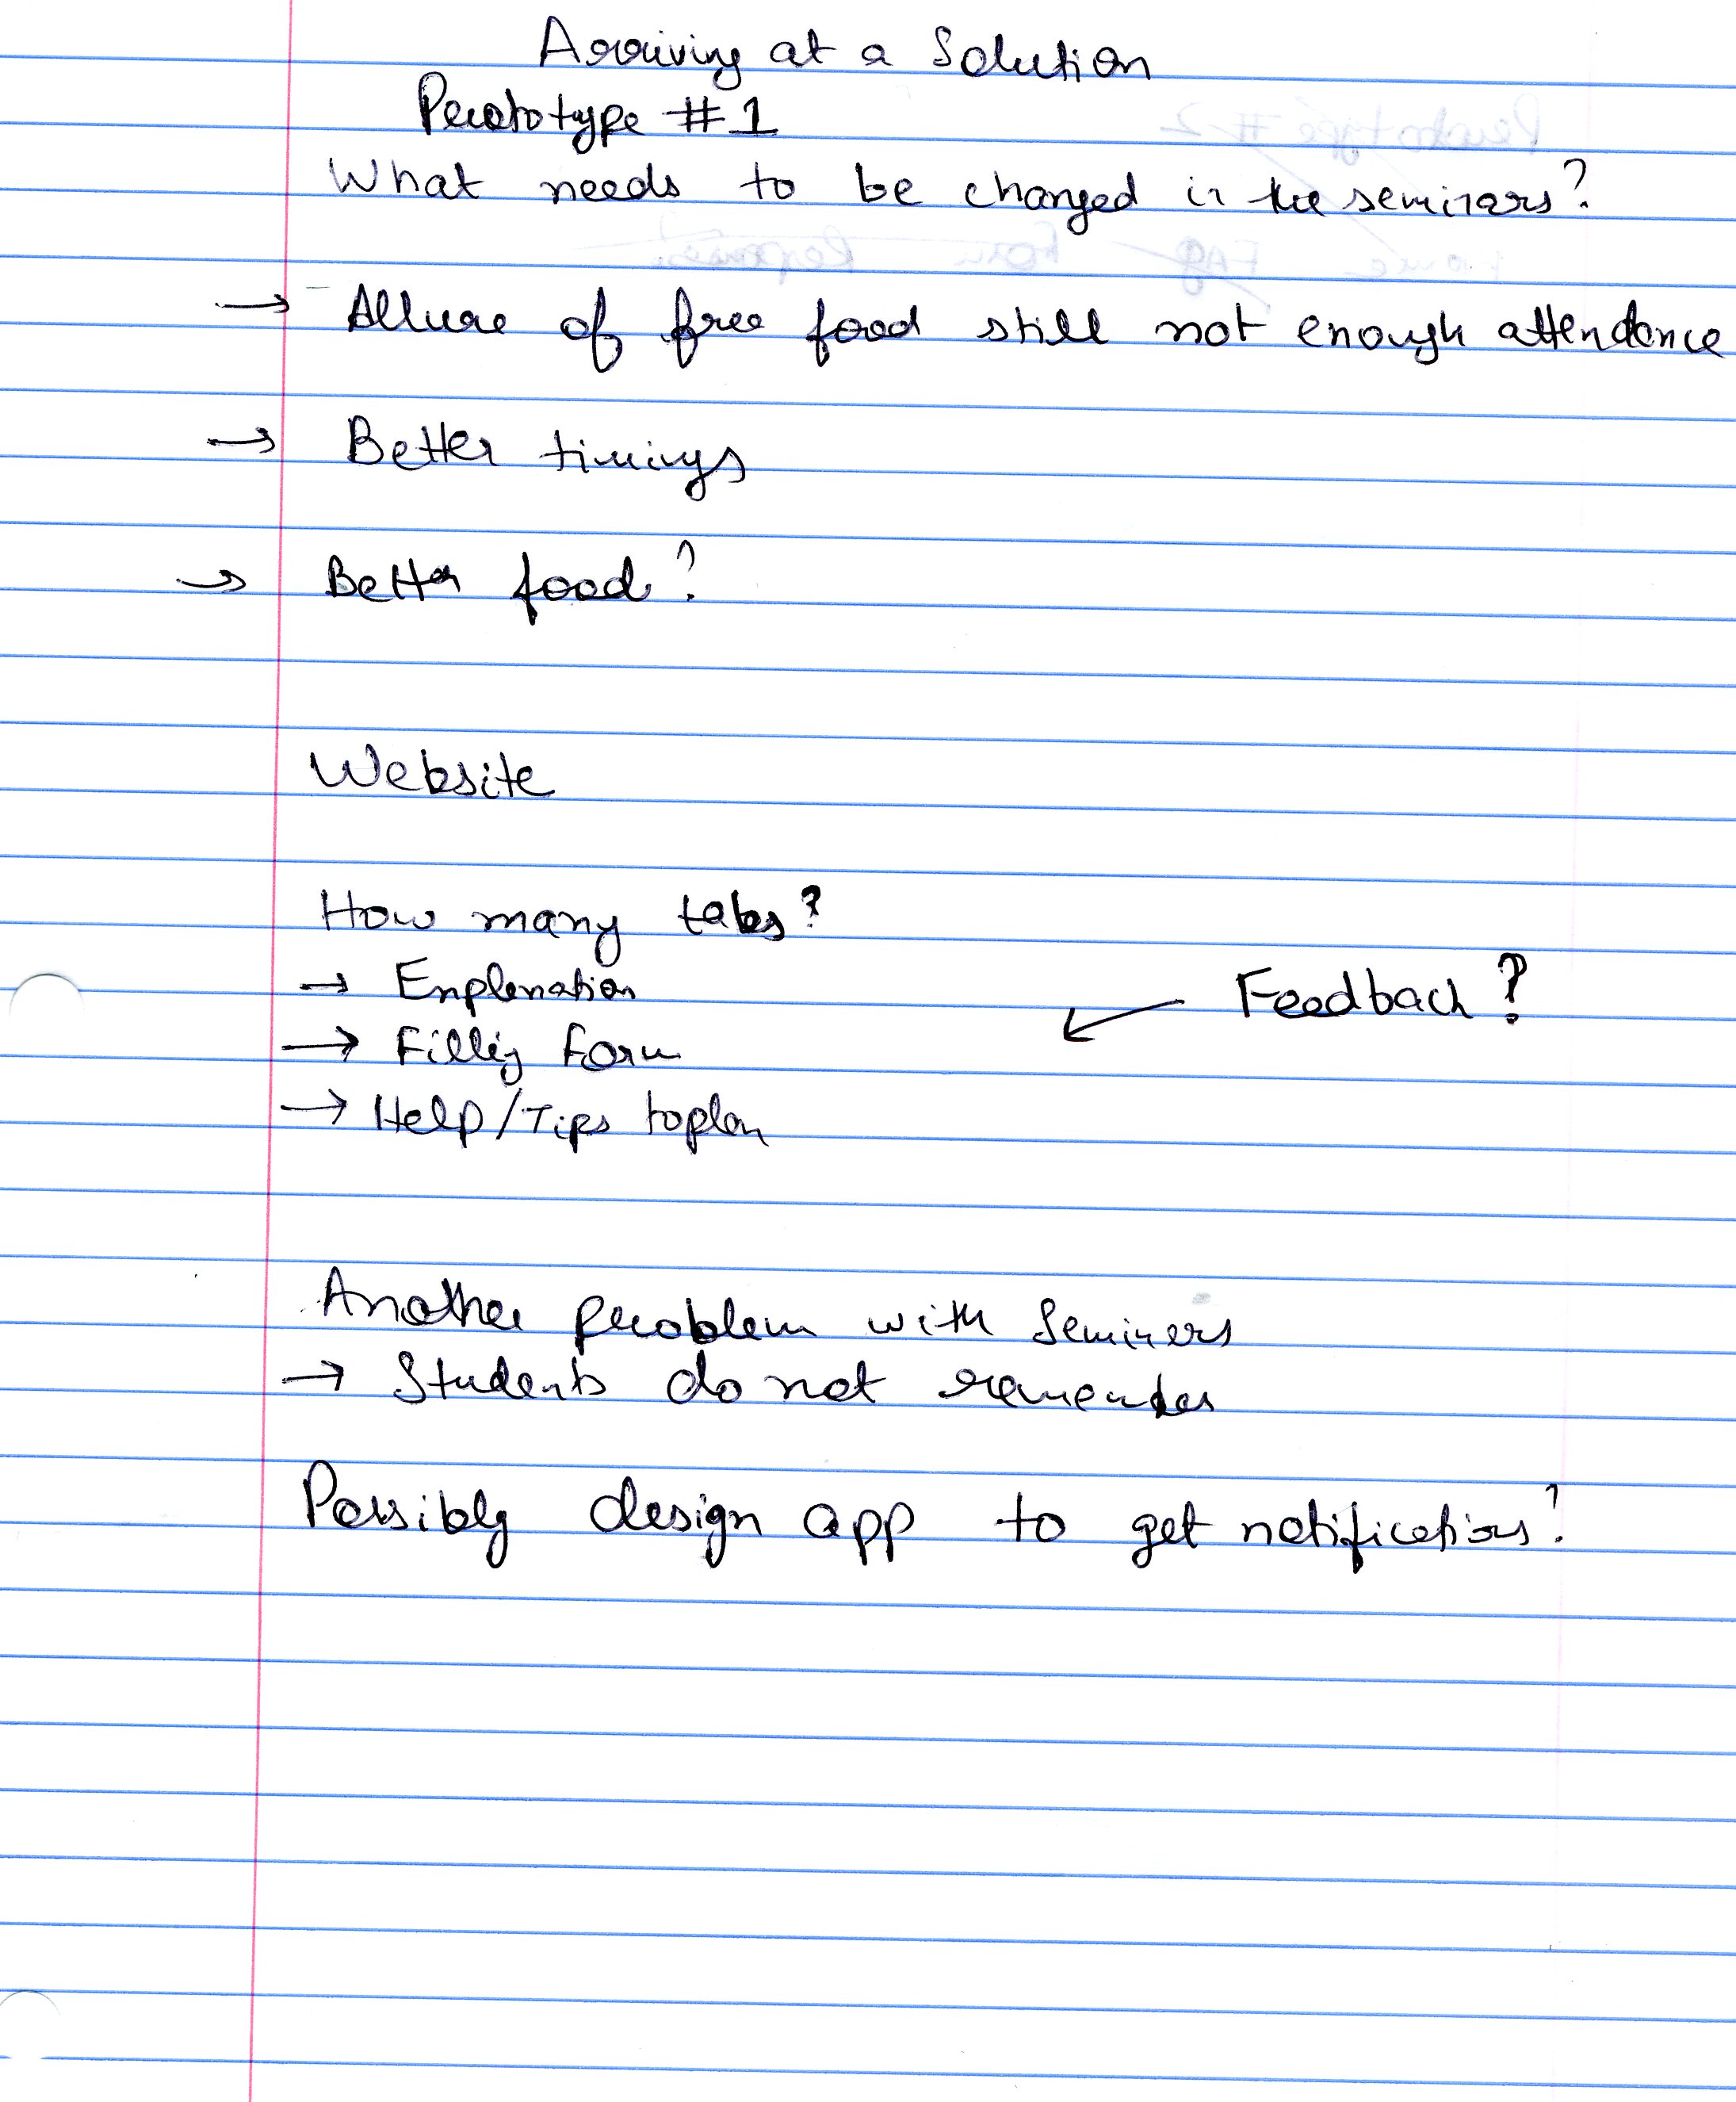 Arriving at a Solution
Prototype #1
What needs to be changed in the seminars?
→ Allure of free food still not enough attendance
→ Better timings
→ Better food?
Website
How many tabs?
→ Explanation
Feedback?
→ Filling Form
→ Help/Tips to plan
Another problem with Seminars
→ Students do not remember
Possibly design app to get notifications?